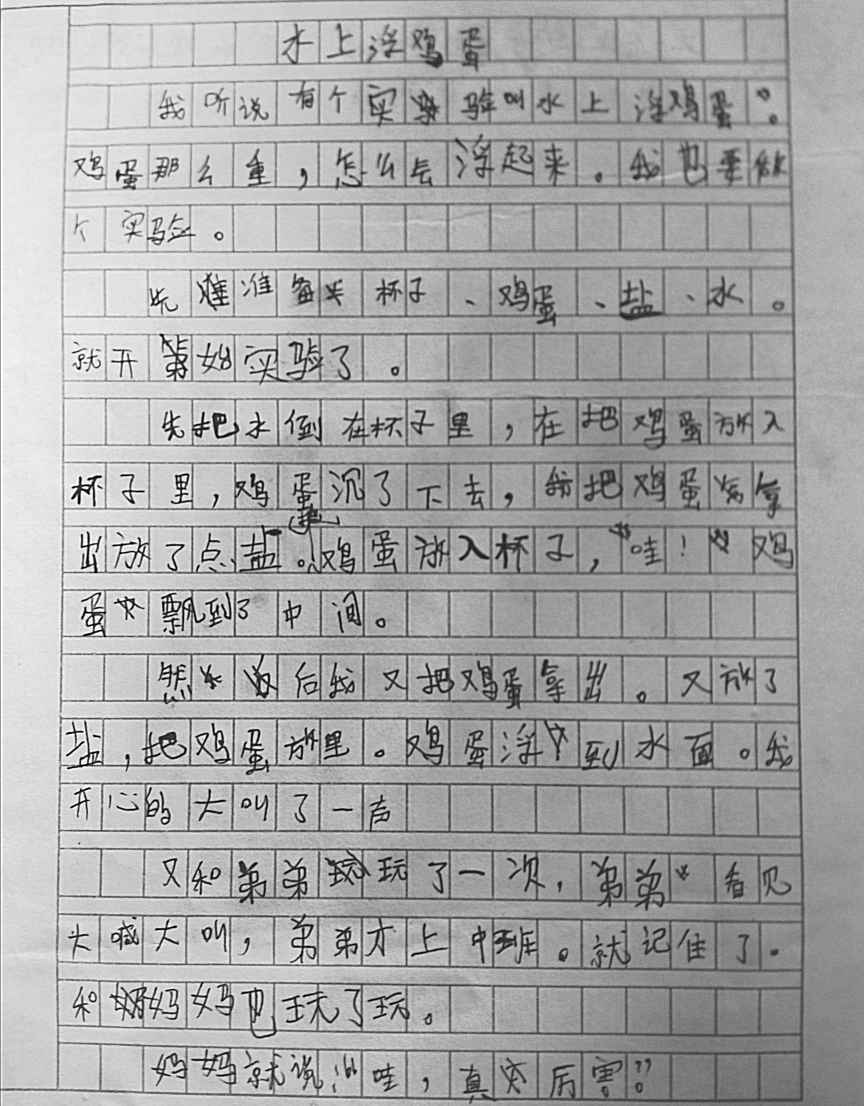 水上浮鸡蛋
我听说有个实验叫水上浮鸡蛋”。
鸡蛋那么重，怎么会浮起来。我也要做
个实验。
先准备杯子、鸡蛋、盐、水。
就开始实验了。
先把水倒在杯子里，在把鸡蛋放入
杯子里，鸡蛋沉了下去，我把鸡蛋拿
出放了点盐。把鸡蛋放入杯子，“哇！”鸡
蛋飘到了中间。
然后我又把鸡蛋拿出。又放了
盐，把鸡蛋放里。鸡蛋浮到水面。我
开心的大叫了一声
又和弟弟玩了一次，弟弟看见
大喊大叫，弟弟才上中班。就记住了。
和妈妈也玩了玩。
妈妈就说“哇，真厉害”。